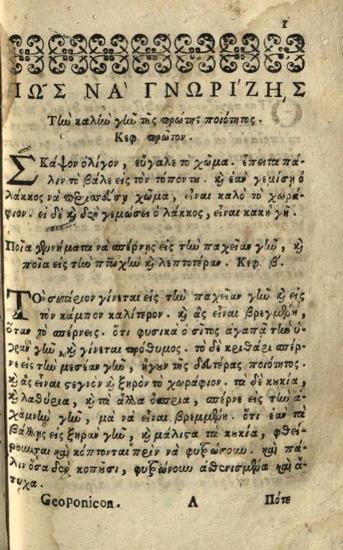 1
ΠΩΣ ΝΑ ΓΝΩΡΙΖΗΣ
Τὴν καλὴν γῆν τῆς πρώτης ποιότητος.
Κεφ. πρῶτον.
ΣΚάψον ὀλίγον, εὔγαλε τὸ χῶμα. ἔπειτα πά-
λιν τὸ βάλε εἰς τὸν τόπον τȣ. καὶ ἐὰν γεμίσῃ ὁ
λάκκος νὰ χῶμα, εἶναι καλὸ τὸ χωρά-
φιον. εἰ δὲ καὶ δὲν γεμώσει ὁ λάκκος, εἶναι κακὴ γῆ.
Ποῖα γεννήματα νὰ σπέρνῃς εἰς τὴν παχεῖαν γῆν, καὶ
ποῖα εἰς τὴν πτωχὴν καὶ λεπτοτέραν. Κεφ. β′.
ΤΟ σιτάριον γίνεται εἰς τὴν παχεῖαν γῆν καὶ εἰς
τὸν κάμπον καλίτερον. καὶ ἂς εἶναι βρεγμένη,
ὅταν τὸ σπέρνεις. ὅτι φυσικὰ ὁ σῖτος ἀγαπᾷ τὴν ὑ-
γρὰν γῆν, καὶ γίνεται πρόθυμος. τὸ δὲ κριθάρι σπέρ-
νε εἰς τὴν μεσέαν γῆν, ἤγουν τῆς δευτέρας ποιότητος.
καὶ ἂς εἶναι στεγνὸν καὶ ξηρὸν τὸ χωράφιον. τὰ δὲ κȣκία,
καὶ λαθύρια, καὶ τὰ ἄλλα ὄσπρια, σπέρνε εἰς τὴν ἀ-
χαμνὴν γῆν, μὰ νὰ εἶναι βρεμμένη. ὅτι ἐὰν τὰ
βάλλῃς εἰς ξηρὰν γῆν, καὶ μάλιστα τὰ κȣκία, φθεί-
ρουνται καὶ κόπτονται πρὶν νὰ φυτρώσουν. καὶ πά-
λιν ὅσα δὲν κοποῦσι, φυτρώνουν ἀσθενισμένα καὶ ἄ-
τυχα.
Geoponicon. A Πότε